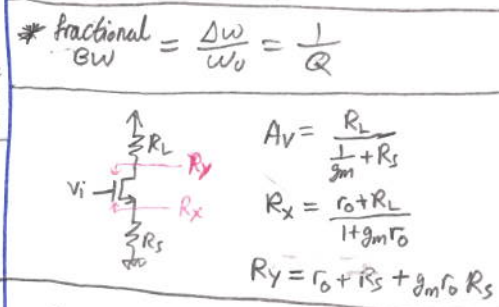 * fractional BW = Δω/ω₀ = 1/Q
RL
Ry
Vi
Rx
Rs
Av = RL / (1/gm + Rs)
Rx = (ro + RL) / (1 + gm ro)
Ry = ro + Rs + gm ro Rs